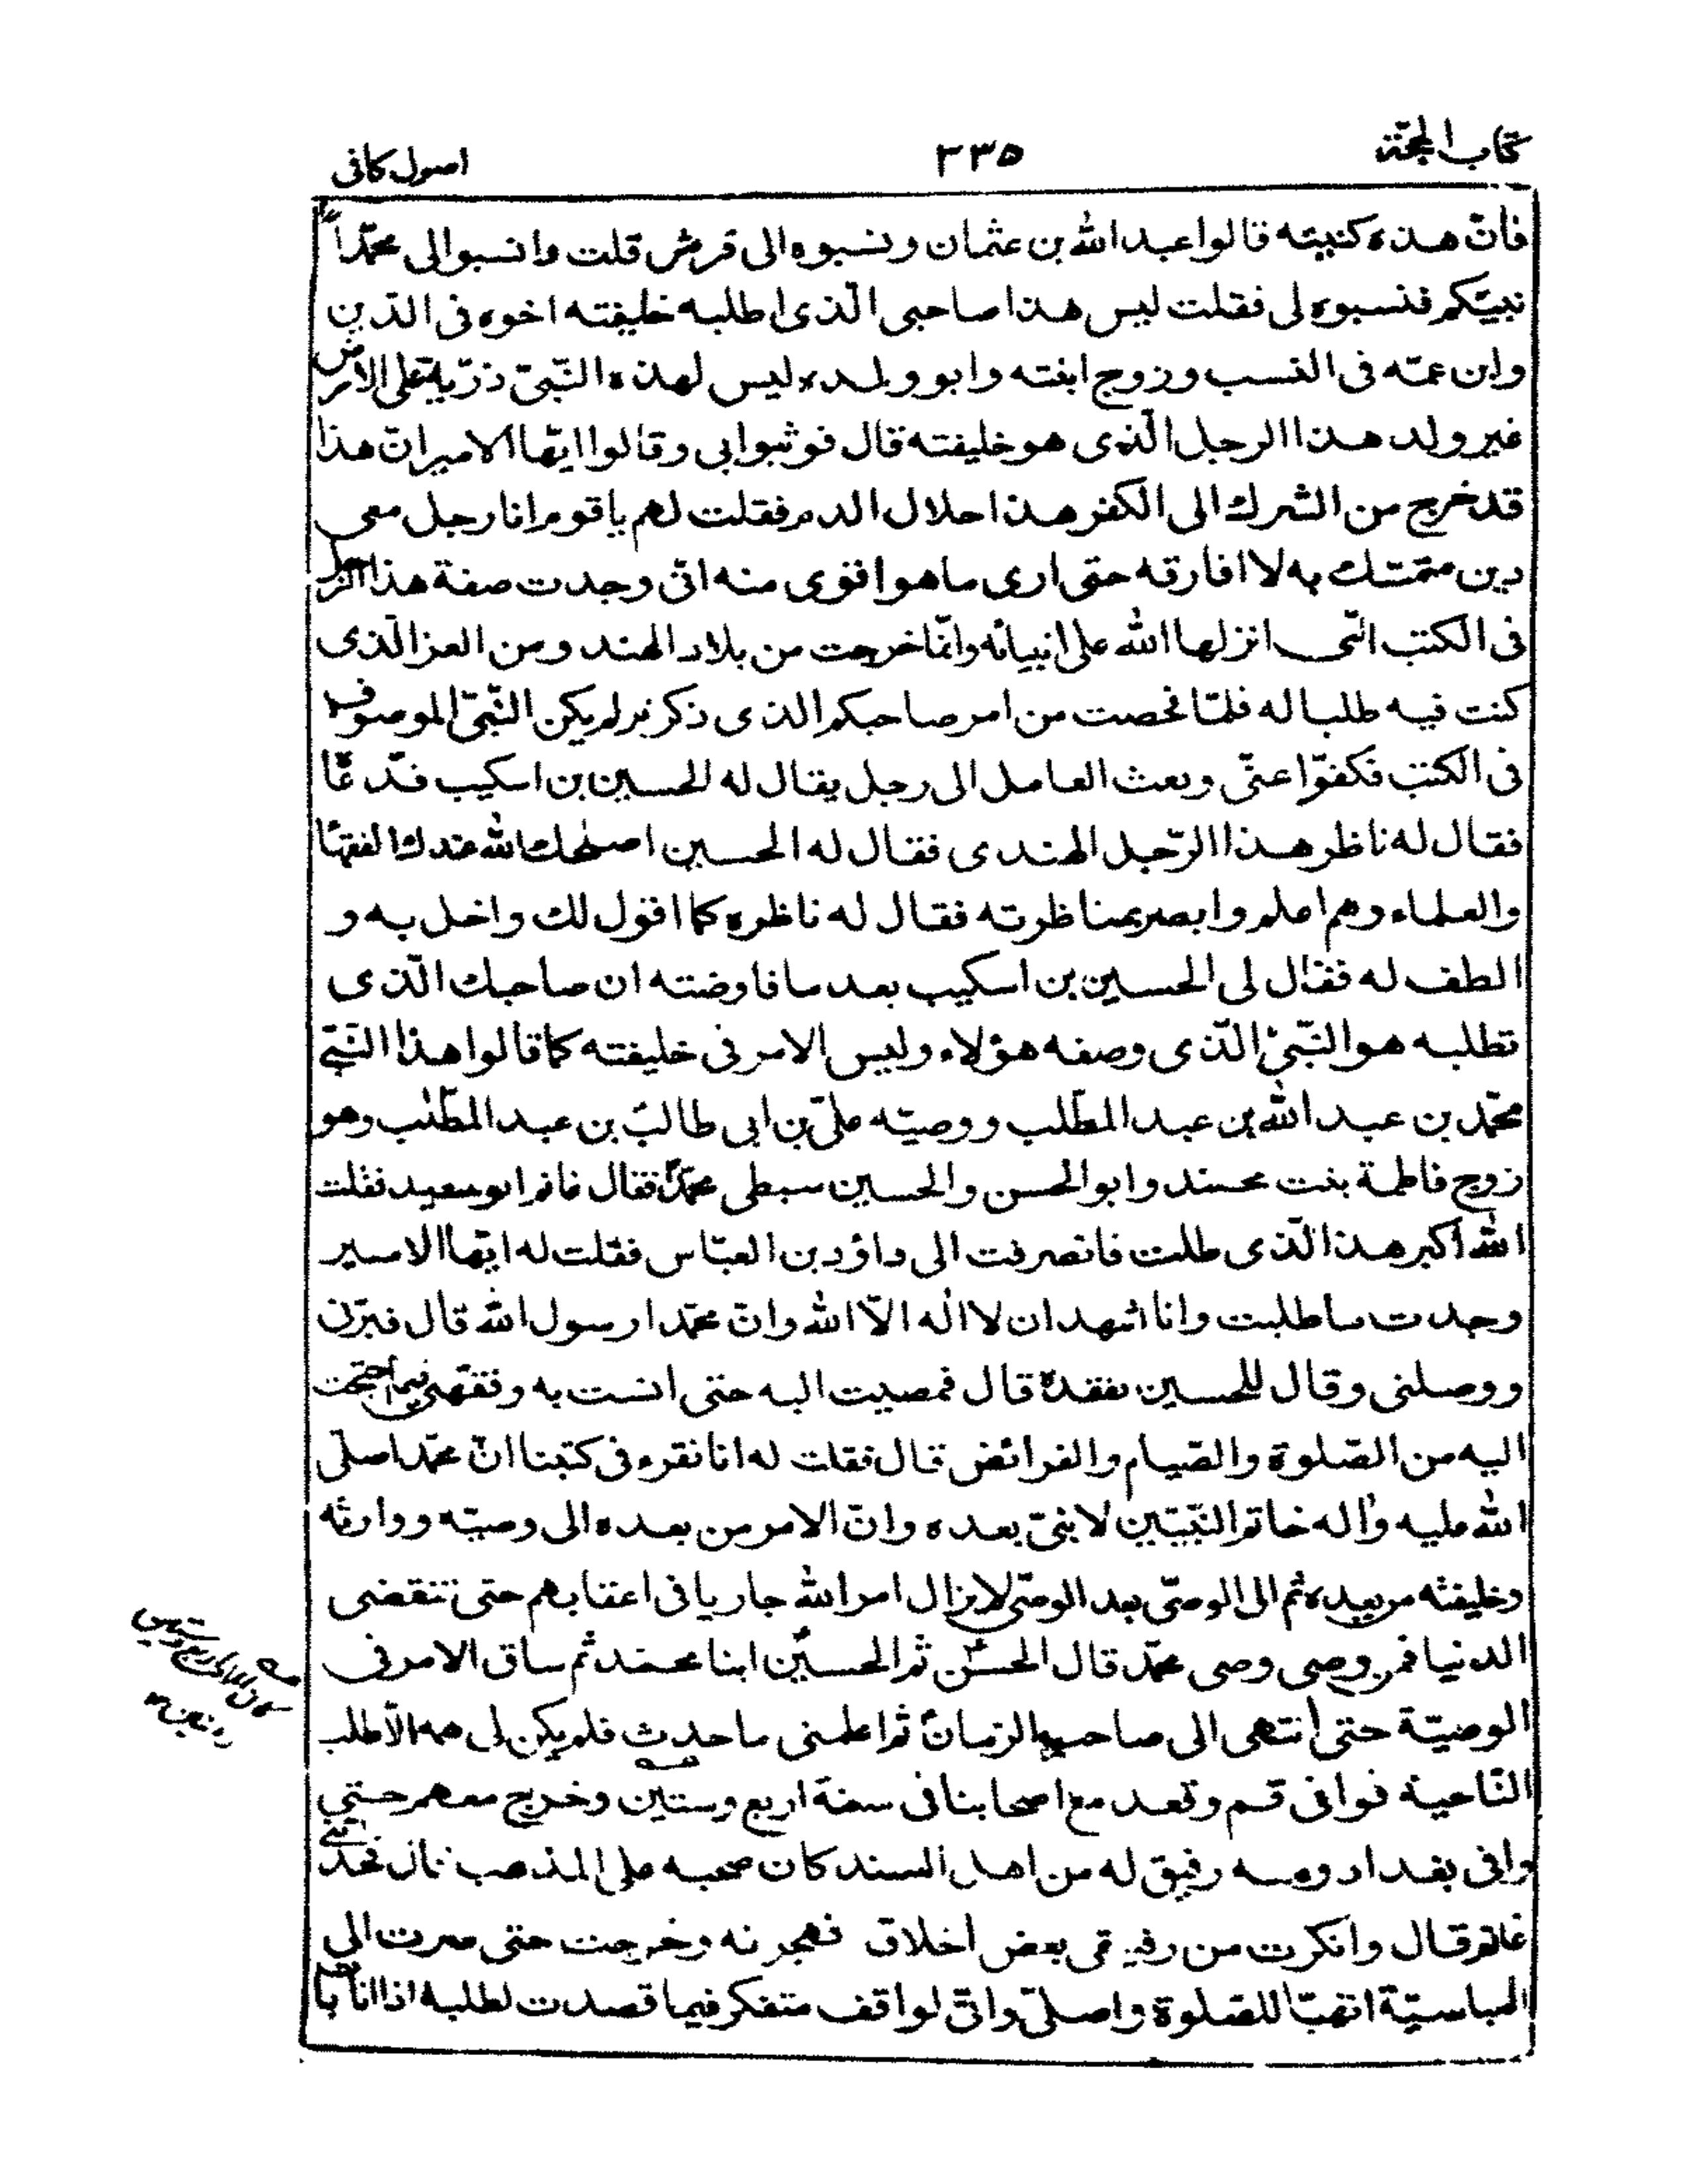 كتاب الحجّة
٣٣٥
اصول كافى
فانّ هذه كنيته قالوا عبد الله بن عثمان ونسبوه الى قريش قلت وانسبوا لى محمّداً
نبيّكم فنسبوه لى فقلت ليس هذا صاحبى الّذى اطلبه خليفته اخوه فى الدّين
وابن عمّه فى النسب وزوج ابنته وابو ولده ليس لهذا النّبىّ ذرّيّة على الارض
غير ولد هذا الرجل الّذى هو خليفته قال فوثبوا بى وقالوا ايّها الامير انّ هذا
قد خرج من الشرك الى الكفر هذا حلال الدم فقلت لهم يا قوم انا رجل معى
دين متمسّك به لا افارقه حتى ارى ما هو اقوى منه انّى وجدت صفة هذا الرّجل
فى الكتب الّتى انزلها الله على انبيائه وانّما خرجت من بلاد الهند ومن العز الّذى
كنت فيه طلبا له فلمّا فحصت من امر صاحبكم الذى ذكرتم لم يكن النّبىّ الموصوف
فى الكتب فكفّوا عنّى وبعث العامل الى رجل يقال له الحسين بن اسكيب فدعاه
فقال له ناظر هذا الرّجل الهندى فقال له الحسين اصلحك الله عندك الفقهاء
والعلماء وهم اعلم وابصر بمناظرته فقال له ناظره كما اقول لك واخل به و
الطف له فقال لى الحسين بن اسكيب بعد ما فاوضته ان صاحبك الّذى
تطلبه هو النّبىّ الّذى وصفه هؤلاء وليس الامر فى خليفته كما قالوا هذا النّبىّ
محمّد بن عبد الله بن عبد المطّلب ووصيّه علىّ بن ابى طالب بن عبد المطّلب وهو
زوج فاطمة بنت محمّد وابو الحسن والحسين سبطى محمّد فقال غانم ابو سعيد فقلت
الله اكبر هذا الّذى طلبت فانصرفت الى داؤد بن العبّاس فقلت له ايّها الامير
وجدت ما طلبت وانا اشهد ان لا اله الّا الله وانّ محمّدا رسول الله قال فبرّنى
ووصلنى وقال للحسين تفقده قال فمضيت اليه حتى انست به وفقّهنى فيما احتجت
اليه من الصّلوة والصّيام والفرائض قال فقلت له انا نقرء فى كتبنا انّ محمّدا صلّى
الله عليه واله خاتم النّبيّين لا نبىّ بعده وانّ الامر من بعده الى وصيّه ووارثه
وخليفته من بعده ثم الى الوصىّ بعد الوصىّ لا يزال امر الله جاريا فى اعقابهم حتى تنقضى
الدنيا فمن وصى وصى محمّد قال الحسن ثم الحسين ابنا محمّد ثم ساق الامر فى
الوصيّة حتى انتهى الى صاحب الزمان ثم اعلمنى ما حدث فلم يكن لى همة الّا طلب
النّاحية فوافى قم وقعد مع اصحابنا فى سنة اربع وستين وخرج معهم حتى
وافى بغداد ومعه رفيق له من اهل السند كان صحبه على المذهب قال فحدّثنى
غانم قال وانكرت من رفيقى بعض اخلاق فهجرته وخرجت حتى صرت الى
العباسيّة اتهيّا للصّلوة واصلّى وانّى لواقف متفكر فيما قصدت لطلبه اذا انا بات